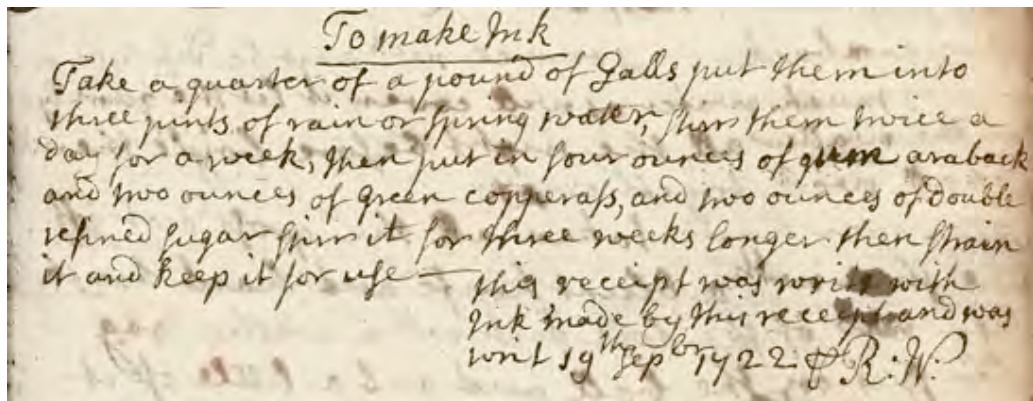 To make Ink
Take a quarter of a pound of Galls put them into
three pints of rain or spring water, stirr them twice a
day for a week, then put in four ounces of gum araback
and two ounces of green copperass, and two ounces of double
refined sugar stirr it for three weeks longer then strain
it and keep it for use —
this receipt was writt with
Ink made by this receept and was
writ 19th Sepbr 1722 R: W.